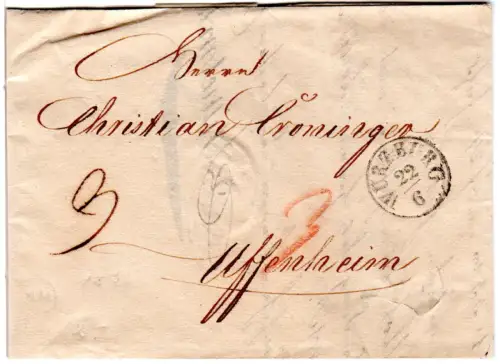 Herrn
Christian Cröninger
WÜRZBURG
22
6
3
Uffenheim